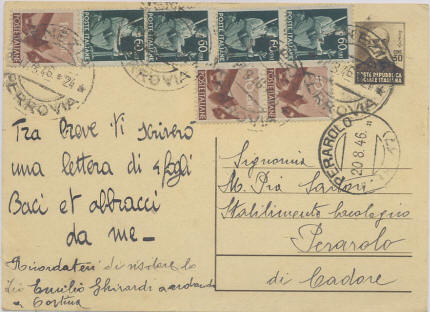 POSTE ITALIANE
POSTE ITALIANE
POSTE ITALIANE
POSTE ITALIANE
POSTE ITALIANE
60
60
60
60
POSTE ITALIANE
POSTE ITALIANE
8.46. * 24
FERROVIA *
FERROVIA
POSTE REPUBBLICA
SOCIALE ITALIANA
50
PERAROLO
20.8.46. *
Tra breve ti scriverò
una lettera di 4 fogli
Baci et abbracci
da me-
Ricordatevi di
Zio Emilio Ghirardi
a Cortina
Signorina
M. Pia Sartori
Stabilimento bacologico
Perarolo
di Cadore